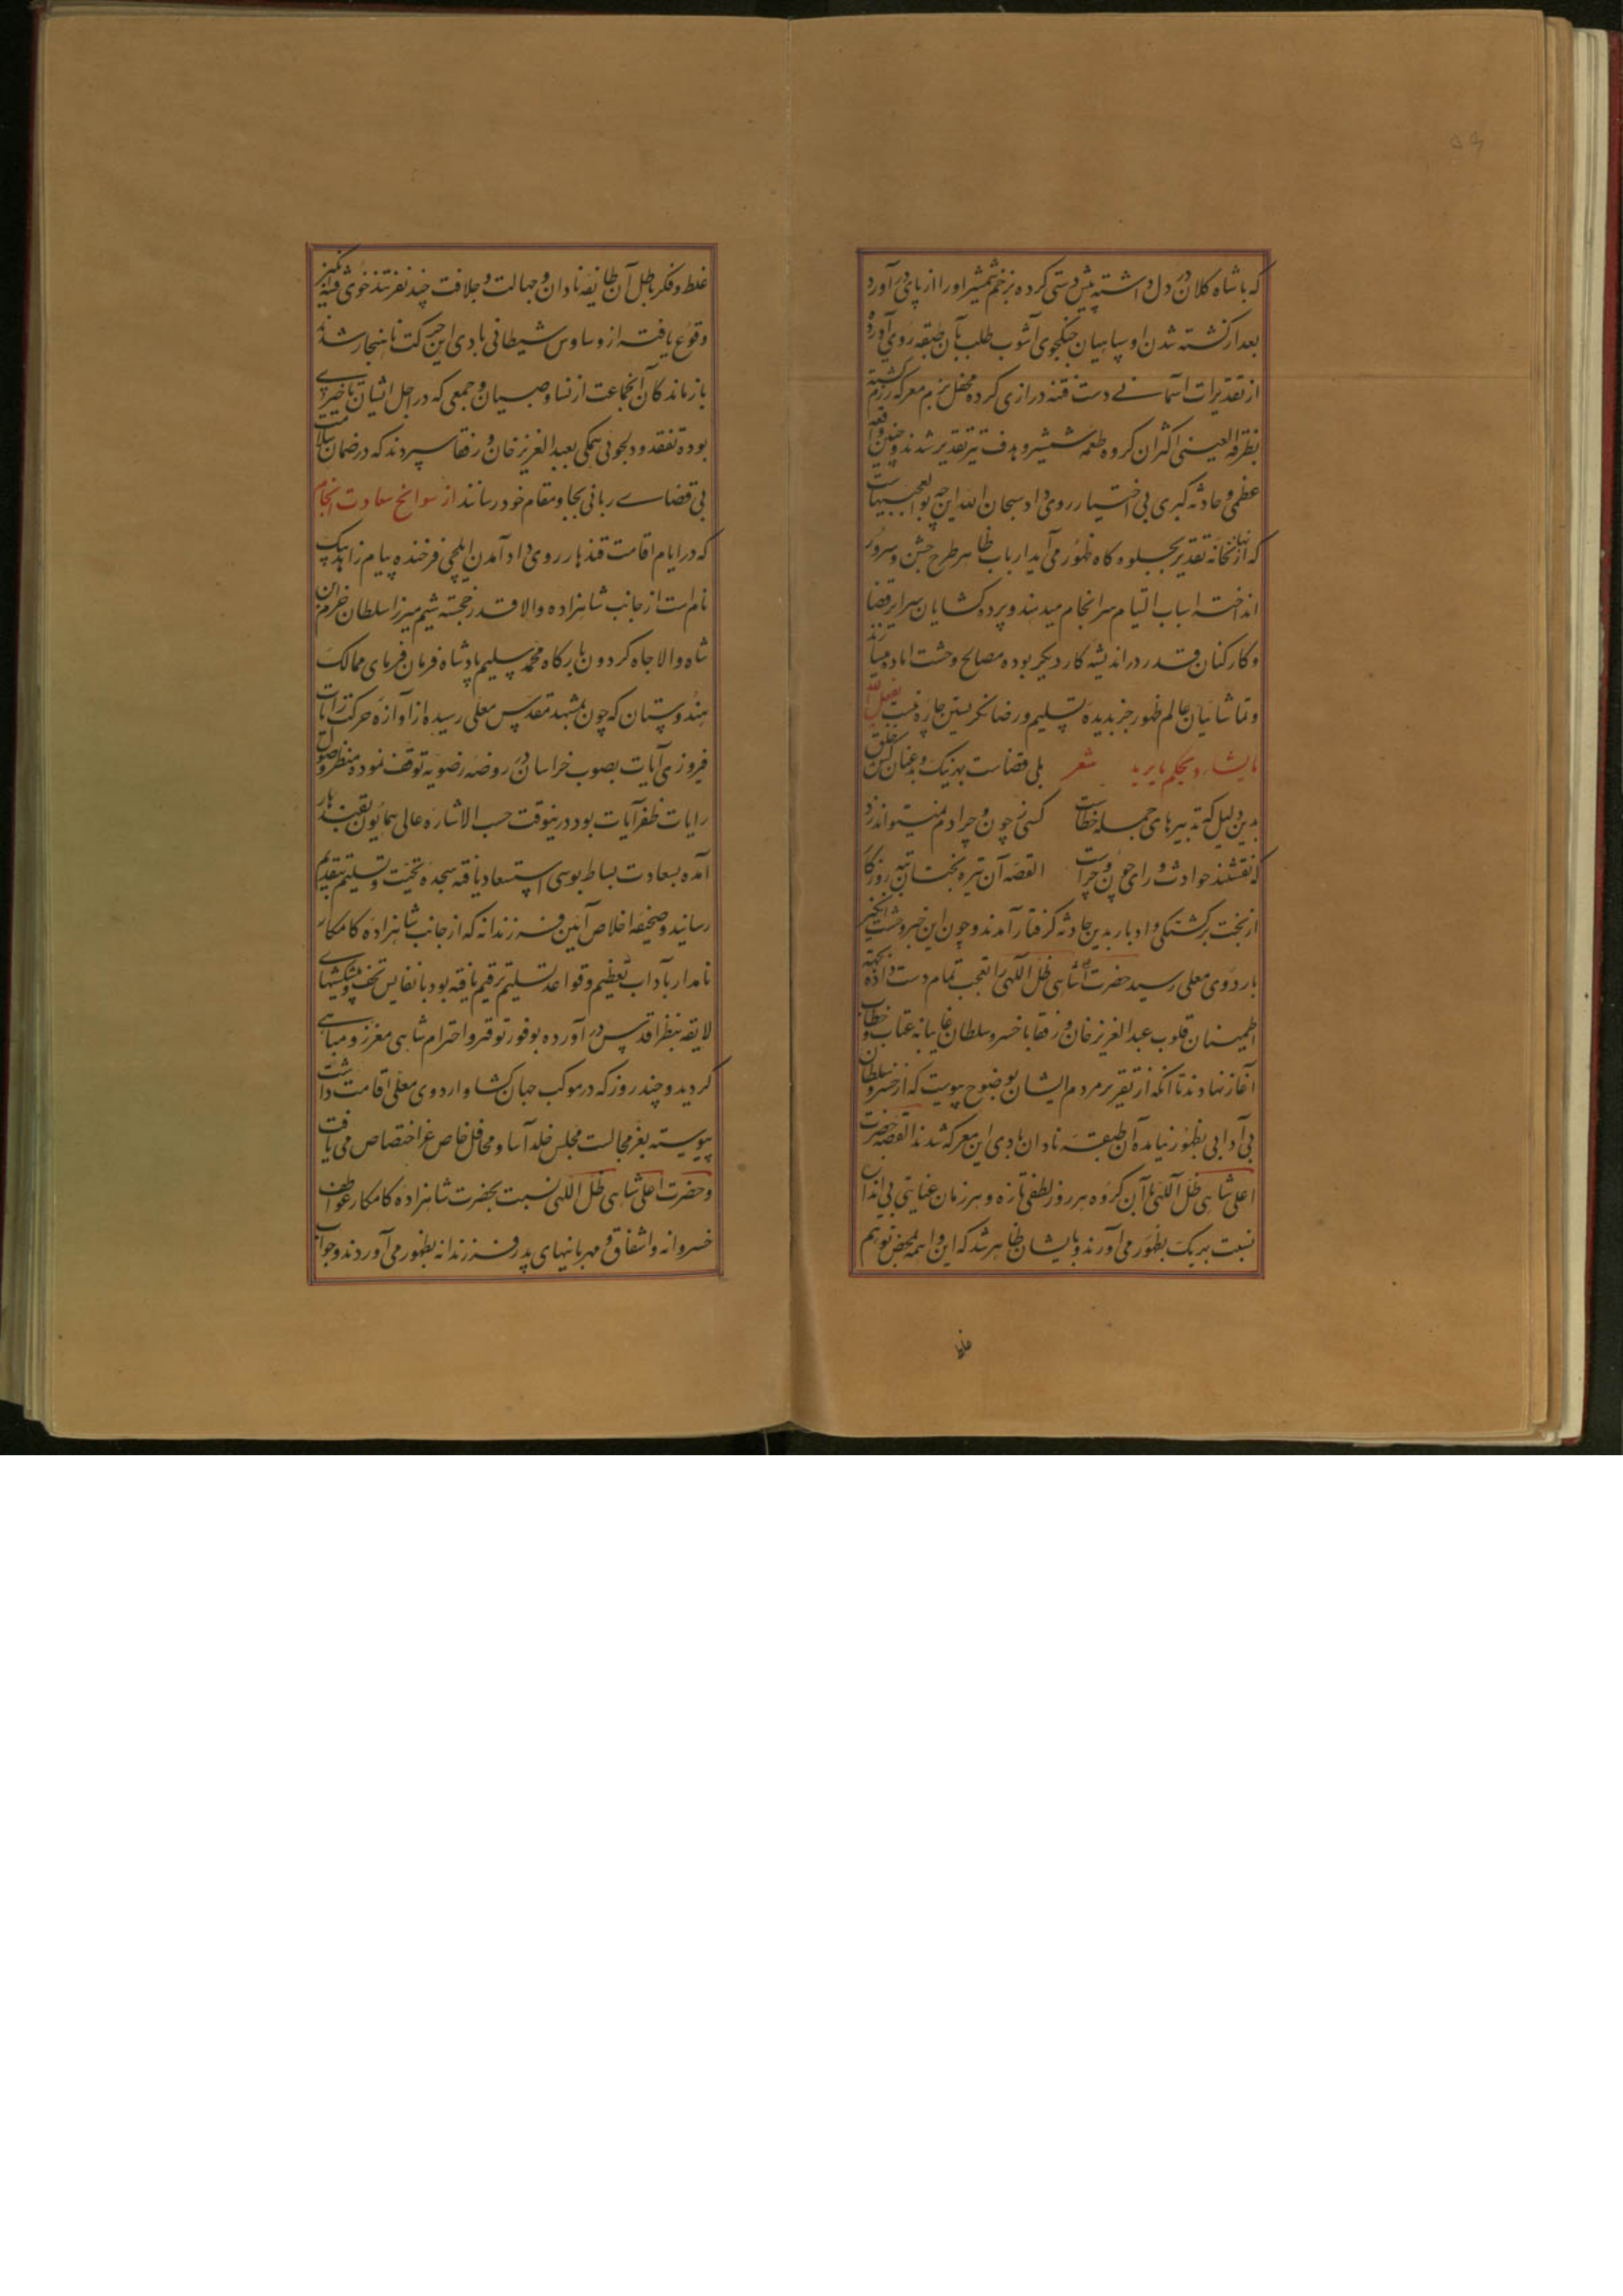 که با شاه کلان در دل داشته پیش دستی کرده بزخم شمشیر او را از پای درآورد
بعد از کشته شدن او سپاهیان جنکجوی آشوب طلب بآن طبقه روی آورده
از تقدیرات آسمانی دست فتنه درازی کرده محفل بزم معرکه رزم کشته
بطرفة العینی اکثر آن کروه طعمه شمشیر و هدف تیر تقدیر شدند و چنین واقعه
عظمی و حادثه کبری بی اختیار روی داد سبحان الله این چه بوالعجبیهاست
که از نهانخانه تقدیر بجلوه کاه ظهور می آید ارباب ظاهر طرح جشن و سرور
انداخته اسباب التیام سرانجام میدهند و پرده کشایان سرایر قضا
و کارکنان قدر در اندیشه کار دیکر بوده مصالح وحشت آماده میسازند
و تماشائیان عالم ظهور جز بدیده تسلیم و رضا نکریستن چاره نیست یفعل الله
ما یشاء و یحکم ما یرید شعر بلی قضاست بهر نیک و بد عنان کش خلق
بدین دلیل که تدبیرهای جمله خطاست کسی ز چون و چرا دم نمیتواند زد
که نقشبند حوادث ورای چون و چراست القصه آن تیره بختان تبه روزکار
از بخت برکشتکی و ادبار بدین حادثه کرفتار آمدند و چون این خبر وحشت انکیز
باردوی معلی رسید حضرت اعلی شاهی ظل اللهی را تعجب تمام دست داده بجهة
اطمینان قلوب عبدالعزیز خان و رفقا با خسرو سلطان غایبانه عتاب و خطاب
آغاز نهادند تا آنکه از تقریر مردم ایشان بوضوح پیوست که از خسرو سلطان
بی آدابی بظهور نیامده آن طبقه نادان بادی این معرکه شدند القصه حضرت
اعلی شاهی ظل اللهی با آن کروه هر روز لطفی تازه و هر زمان عنایتی بی اندازه
نسبت بهر یک بظهور می آورند و بایشان ظاهر شد که این واهمه محض توهم
غلط
غلط و فکر باطل آن طایفه نادان و جهالت و جلافت چند نفر تندخوی فتنه انکیز
وقوع یافته از وساوس شیطانی بادی این حرکت ناهنجار شدند
بازماندکان آنجماعت از نسا و صبیان و جمعی که در اجل ایشان تاخیری
بوده تفقد و دلجوئی همکی بعبدالعزیز خان و رفقا سپردند که در ضمان سلامت
بی قضای ربانی بجا و مقام خود رسانند از سوانح سعادت انجام
که در ایام اقامت قندهار روی داد آمدن ایلچی فرخنده پیام زاهد بیک
نام است از جانب شاهزاده والاقدر خجسته شیم میرزا سلطان خرم بن
شاه والاجاه کردون بارکاه محمد سلیم پادشاه فرمان فرمای ممالک
هندوستان که چون بمشهد مقدس معلی رسیده از آوازه حرکت رایات
فیروزی آیات بصوب خراسان در روضه رضویه توقف نموده منتظر وصول
رایات ظفر آیات بود درینوقت حسب الاشاره عالی همایون بقندهار
آمده بسعادت بساط بوسی استسعاد یافته سجده تحیت و تسلیم بتقدیم
رسانید و صحیفه اخلاص آئین فرزندانه که از جانب شاهزاده کامکار
نامدار بآداب تعظیم و قواعد تسلیم ترقیم یافته بود با نفایس تحف و پیشکشهای
لایقه بنظر اقدس درآورده بوفور توقیر و احترام شاهی معزز و مباهی
کردید و چند روز که در موکب جهان کشا و اردوی معلی اقامت داشت
پیوسته بعز مجالست مجلس خلد آسا و محافل خاص عز اختصاص می یافت
و حضرت اعلی شاهی ظل اللهی نسبت بحضرت شاهزاده کامکار عواطف
خسروانه و اشفاق و مهربانیهای پدر فرزندانه بظهور می آوردند و جواب